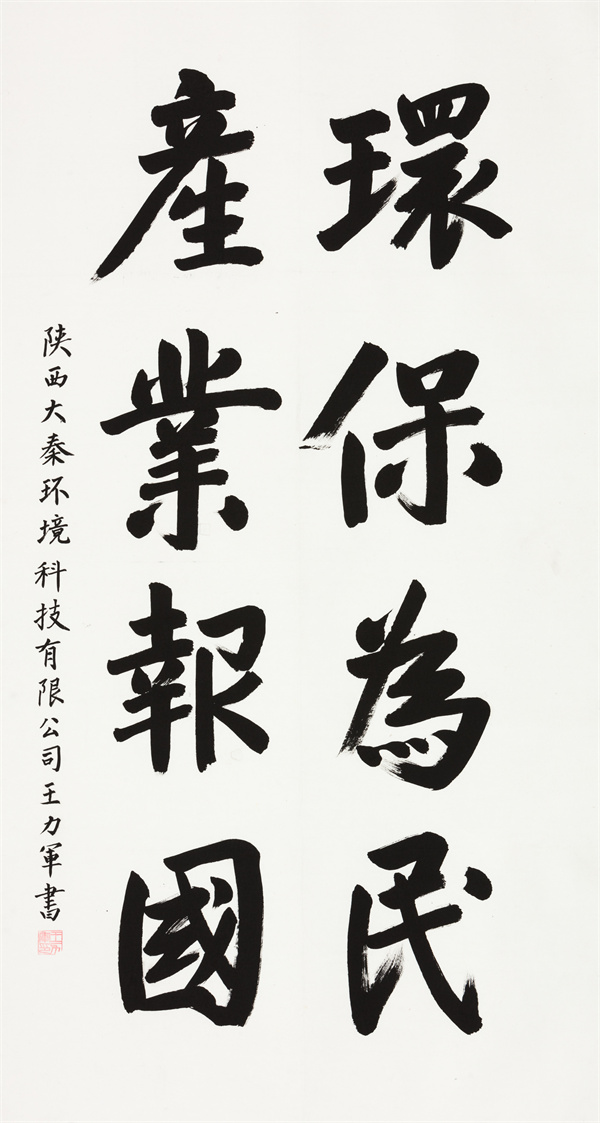 環保為民
產業報國
陕西大秦环境科技有限公司王力軍書